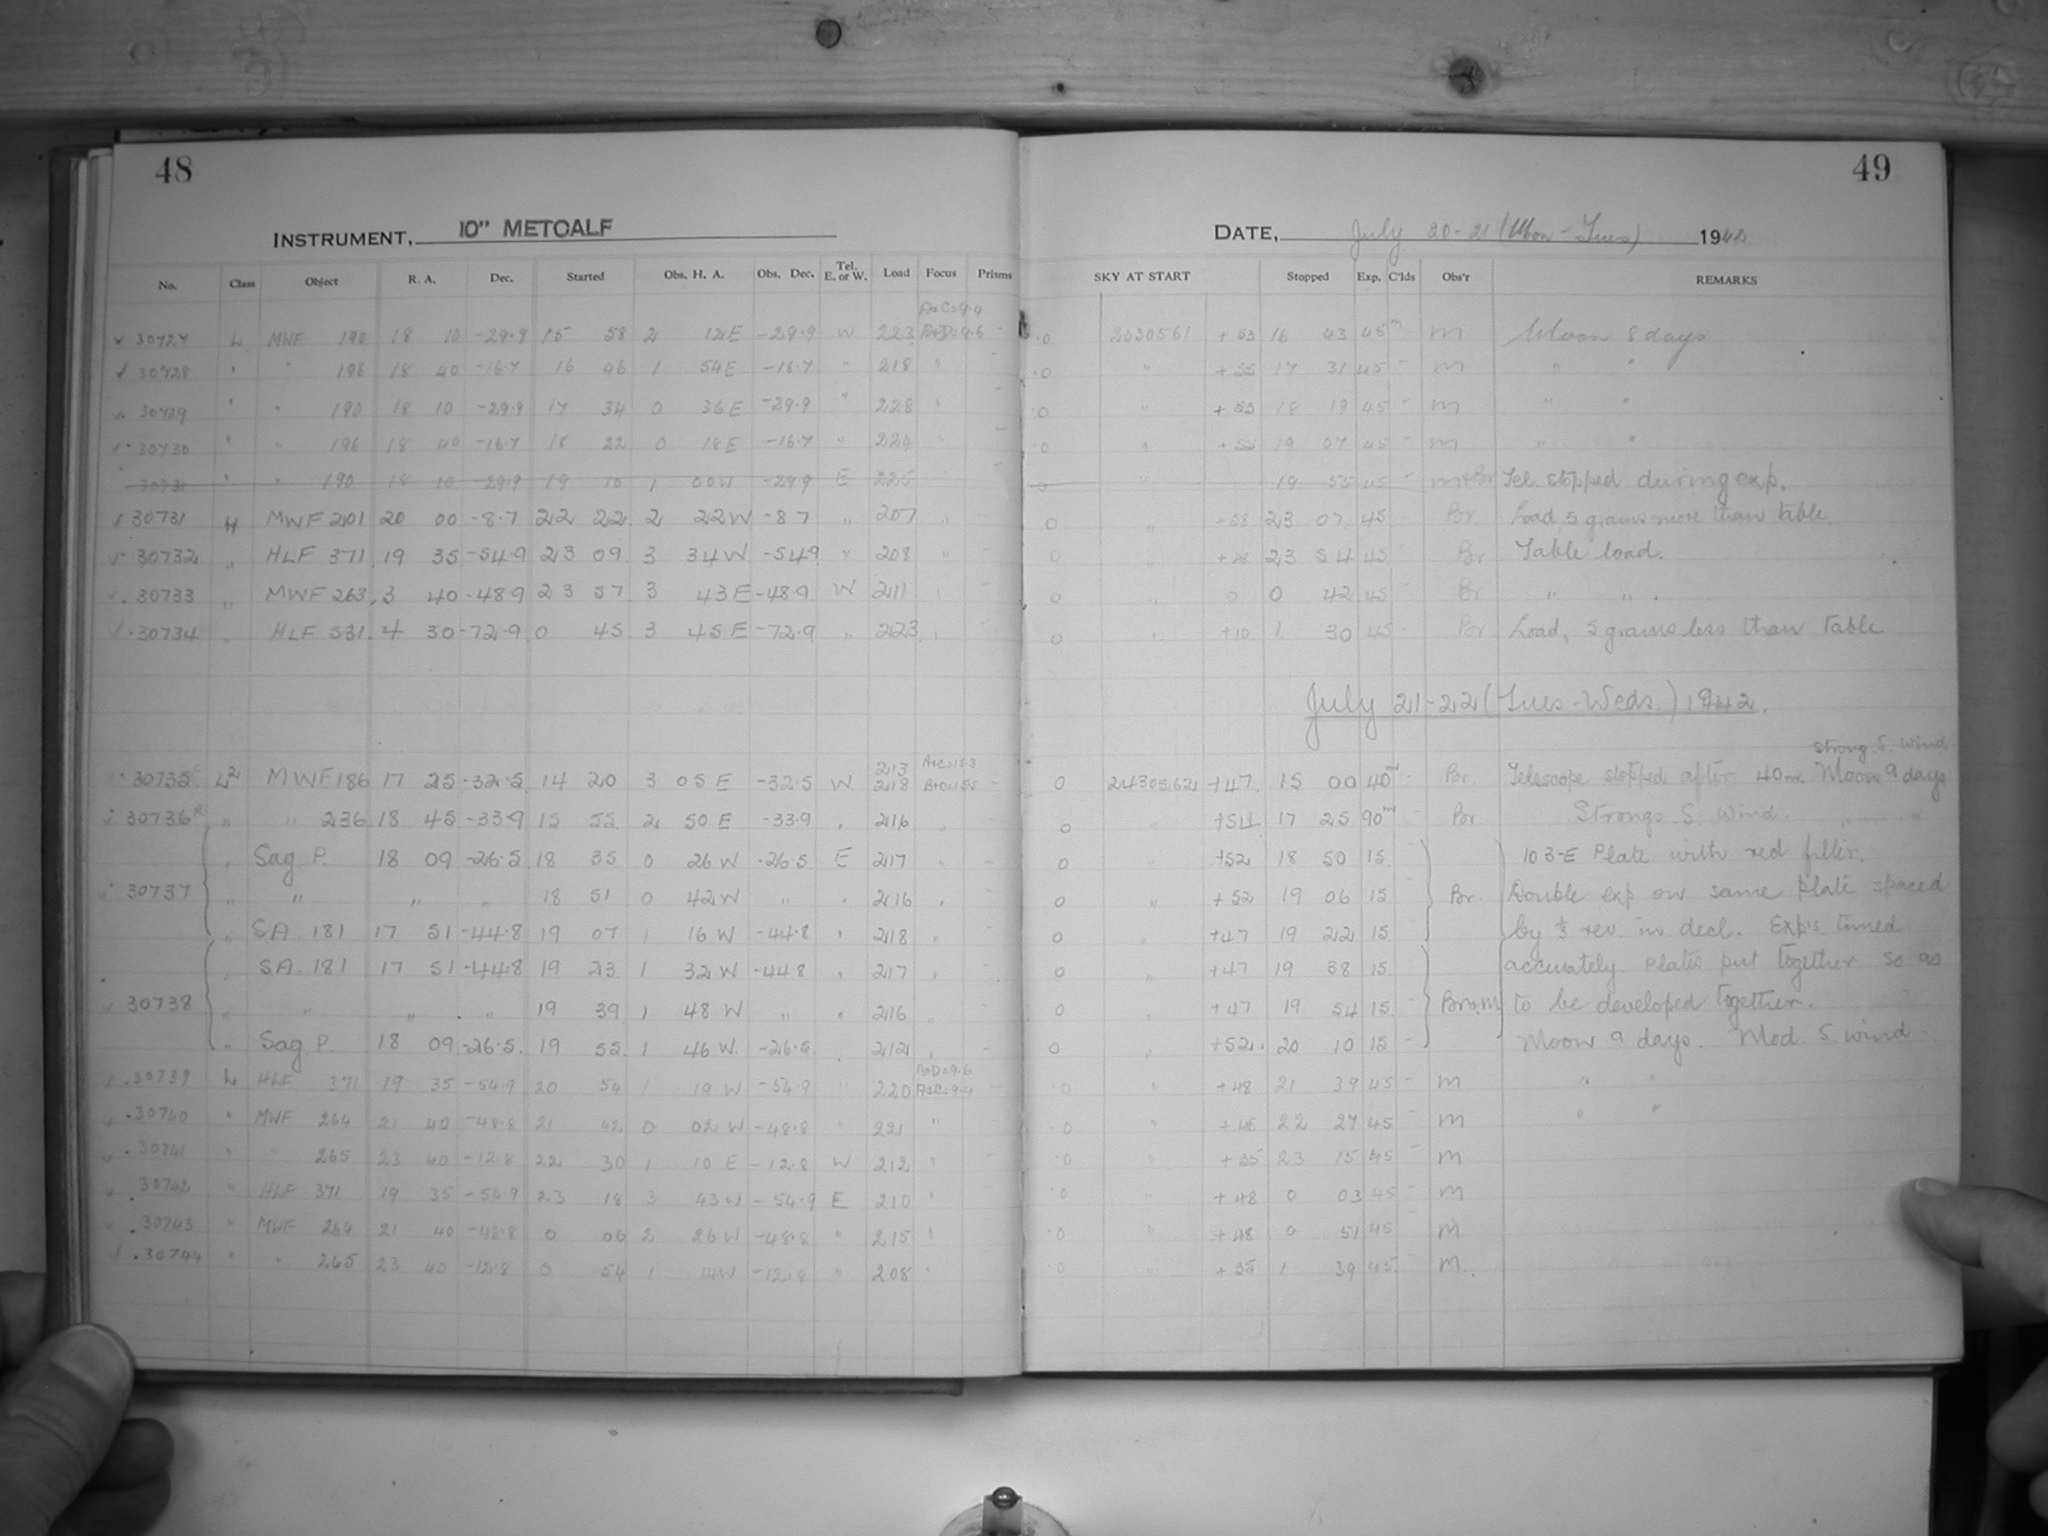 48
INSTRUMENT, 10" METCALF
No. Class Object R. A. Dec. Started Obs. H. A. Obs. Dec. Tel. E. or W. Load Focus Prisms
A+C=9.4
30727 L MWF 190 18 10 -29.9 15 58 2 12E -29.9 W 223 B+D=9.6 -
30728 " " 196 18 40 -16.7 16 46 1 54E -16.7 " 218 " -
30729 " " 190 18 10 -29.9 17 34 0 36E -29.9 " 228 " -
30730 " " 196 18 40 -16.7 18 22 0 18E -16.7 " 224 " -
30731 " " 190 18 10 -29.9 19 10 1 00W -29.9 E 225 -
30731 MWF 201 20 00 -8.7 22 22 2 22W -8.7 " 207 " -
30732 " HLF 371 19 35 -54.9 23 09 3 34W -54.9 " 208 " -
30733 " MWF 263 3 40 -48.9 23 57 3 43E -48.9 W 211 " -
30734 " HLF 531 4 30 -72.9 0 45 3 45E -72.9 " 223 " -
30735 MWF 186 17 25 -32.5 14 20 3 05E -32.5 W 213 218 -
30736R " " 236 18 45 -33.9 15 55 2 50E -33.9 " 216 " -
" Sag P. 18 09 -26.5 18 35 0 26W -26.5 E 217 " -
30737 " " " " 18 51 0 42W " " 216 " -
" SA. 181 17 51 -44.8 19 07 1 16W -44.8 " 218 " -
" SA. 181 17 51 -44.8 19 23 1 32W -44.8 " 217 " -
30738 " " " " 19 39 1 48W " " 216 " -
" Sag P. 18 09 -26.5 19 55 1 46W -26.5 " 212 " -
B+D=9.6
30739 L HLF 371 19 35 -54.9 20 54 1 19W -54.9 " 220 A+C=9.4 -
30740 " MWF 264 21 40 -48.8 21 42 0 02W -48.8 " 221 "
30741 " " 265 23 40 -12.8 22 30 1 10E -12.8 W 212 "
30742 " HLF 371 19 35 -54.9 23 18 3 43W -54.9 E 210 "
30743 " MWF 264 21 40 -48.8 0 06 2 26W -48.8 " 215 "
30744 " " 265 23 40 -12.8 0 54 1 14W -12.8 " 208 "
49
DATE, July 20-21 (Mon-Tues) 1942
SKY AT START Stopped Exp. C'lds Obs'r REMARKS
0 2430561 +53 16 43 45m - m Moon 8 days
0 " +55 17 31 45 - m " "
0 " +53 18 19 45 - m " "
0 " +55 19 07 45 - m " "
0 " 19 55 45 - m+Br Tel. stopped during exp.
0 " +58 23 07 45 - Br Load, 5 grams more than table.
0 " 23 54 45 Br Table load.
0 " 0 0 42 45 Br " "
0 " +10 1 30 45 - Br Load, 5 grams less than Table
July 21-22 (Tues-Weds.) 1942.
Strong S. wind.
0 2430562 +47 15 00 40m - Br. Telescope stopped after 40m. Moon 9 days
0 " +54 17 25 90m - Br Strong S. Wind. " "
0 " +52 18 50 15 103-E Plate with red filter.
0 " +52 19 06 15 Br. Double exp on same plate spaced
0 " +47 19 22 15 by ⅓ rev. in decl. Exp's timed
0 " +47 19 38 15 accurately. Plates put together so as
0 " +47 19 54 15 Br+M to be developed together.
0 " +52 20 10 15 Moon 9 days. Mod. S. wind
0 " +48 21 39 45 - m " "
0 " +48 22 27 45 - m " "
0 " +35 23 15 45 - m
0 " +48 0 03 45 - m
0 " +48 0 51 45 - m
0 " +35 1 39 45 - m.